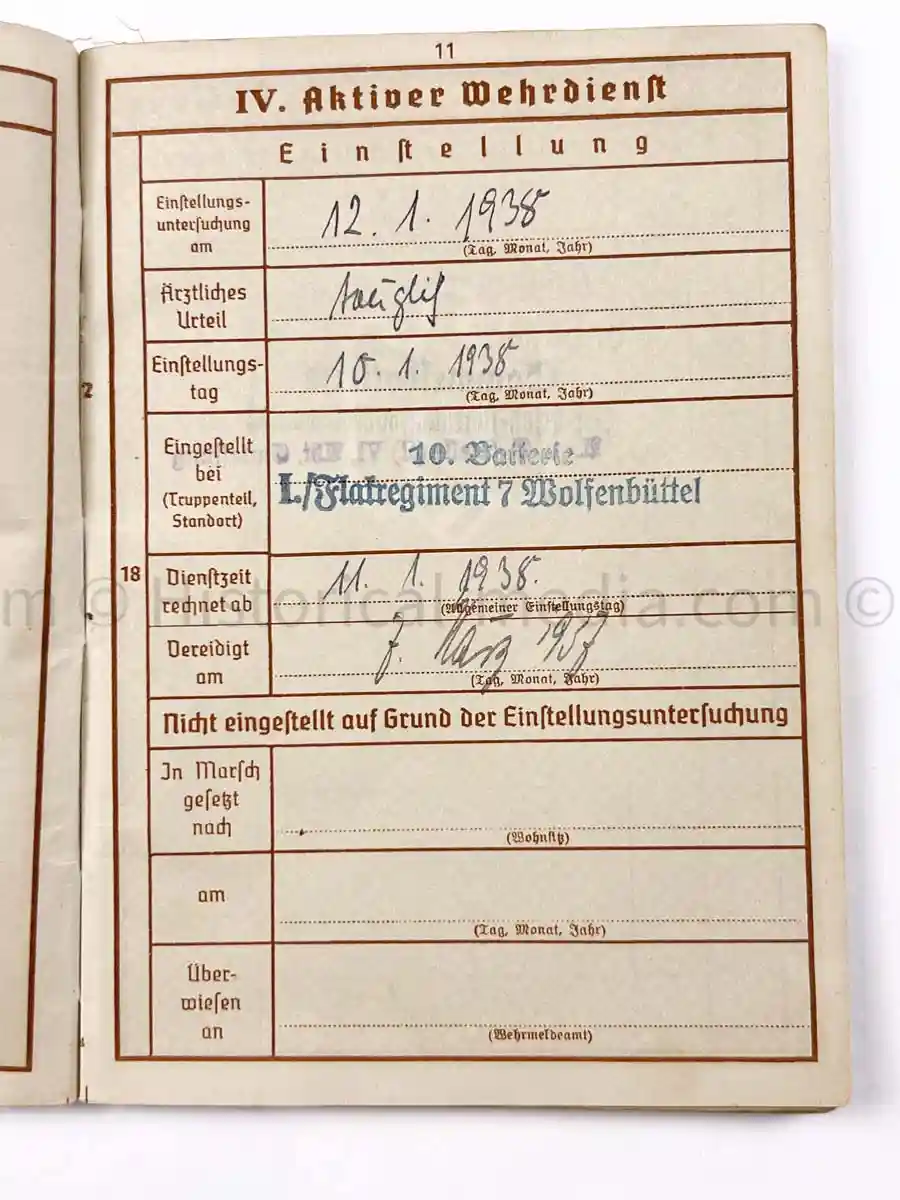 11
IV. Aktiver Wehrdienst
Einstellung
Einstellungs-
untersuchung
am
12. 1. 1938
(Tag, Monat, Jahr)
Ärztliches
Urteil
tauglich
Einstellungs-
tag
10. 1. 1938
(Tag, Monat, Jahr)
Eingestellt
bei
(Truppenteil,
Standort)
10. Batterie
I./Flakregiment 7 Wolfenbüttel
18
Dienstzeit
rechnet ab
11. 1. 1938.
(Allgemeiner Einstellungstag)
Vereidigt
am
7. März
(Tag, Monat, Jahr)
Nicht eingestellt auf Grund der Einstellungsuntersuchung
In Marsch
gesetzt
nach
(Wohnsitz)
am
(Tag, Monat, Jahr)
Über-
wiesen
an
(Wehrmeldeamt)
m © Historicalmedia.com ©